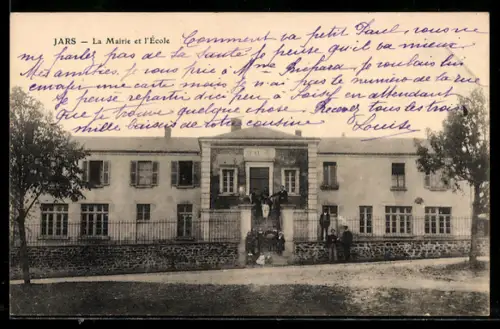 JARS — La Mairie et l'École
Comment va petit Paul vous ne
me parlez pas de la Santé je pense qu'il va mieux.
Mes amitiés, je vous prie à Mme je voulais lui
envoyer une carte mais je n'ai pas le numéro de la rue
Je pense repartir d'ici peu à en attendant
que je trouve quelque chose. Recevez tous les trois
mille baisers de votre cousine
Louise